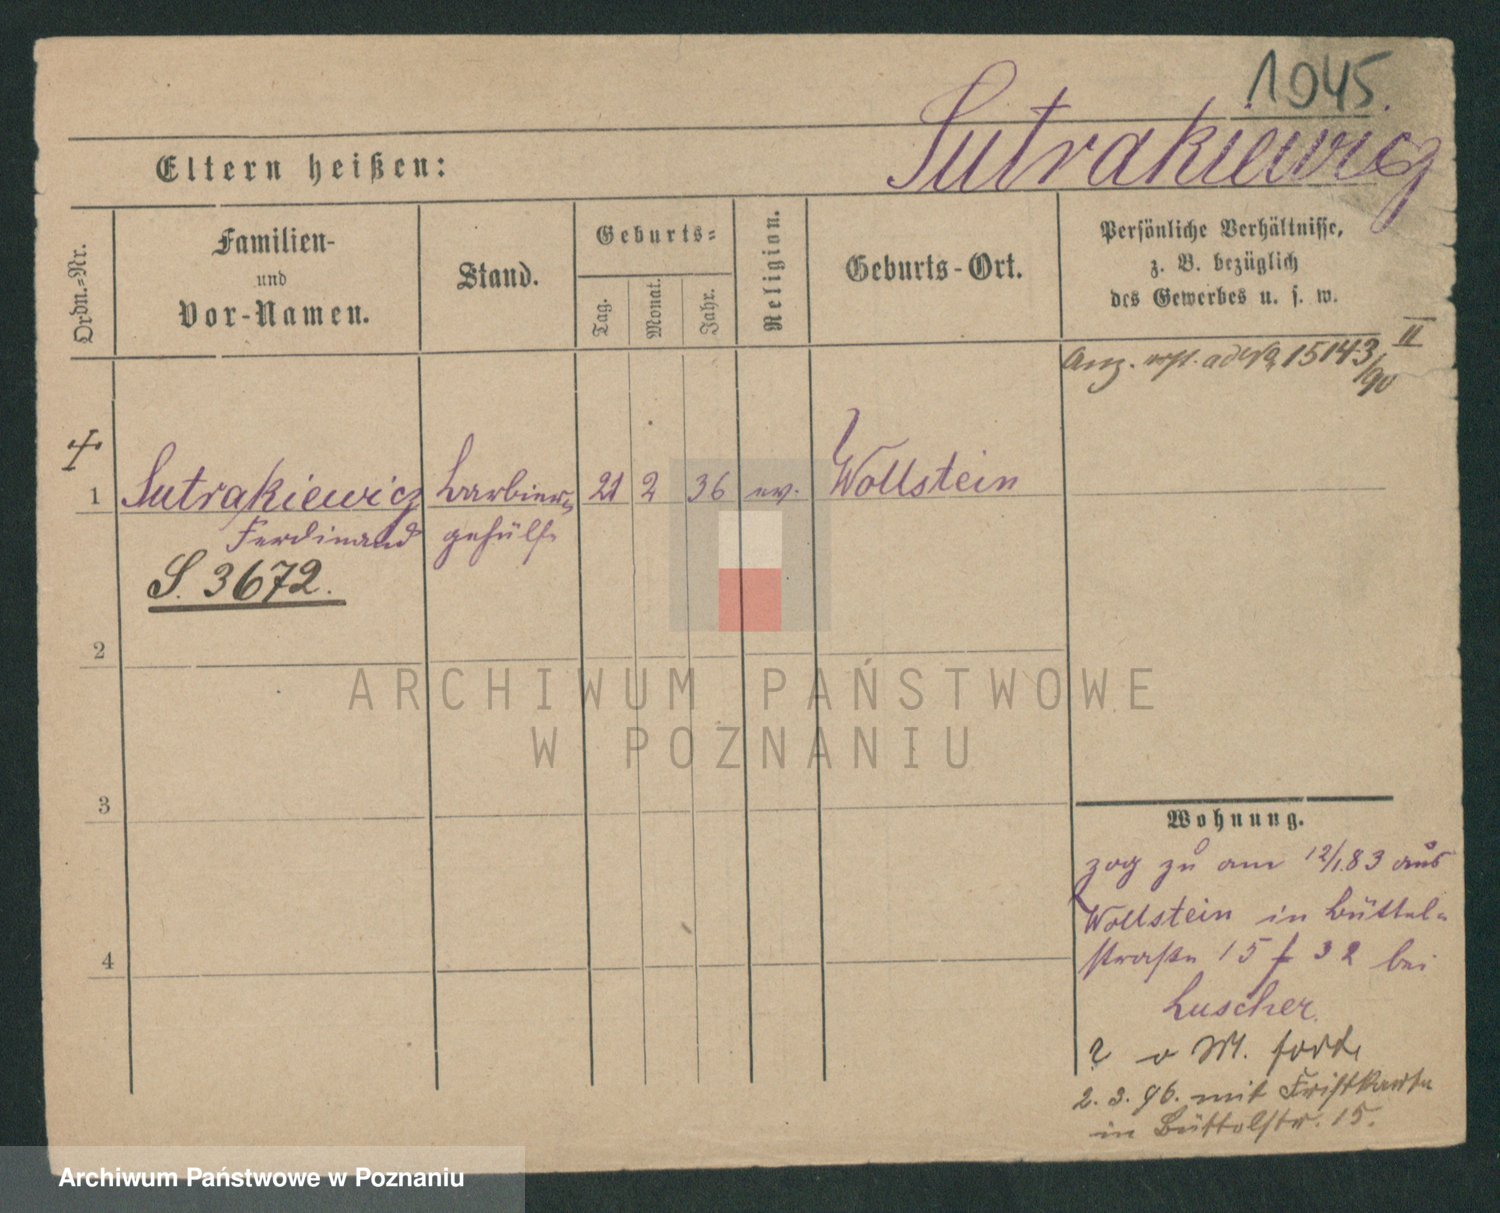 1945.
Sutrakiewicz
Eltern heißen:
Ordn.=Nr.
Familien-
und
Vor-Namen.
Stand.
Geburts=
Tag.
Monat.
Jahr.
Religion.
Geburts-Ort.
Persönliche Verhältnisse,
z. B. bezüglich
des Gewerbes u. s. w.
II
Anz. 15143/90
1 Sutrakiewicz Barbier= 21 2 36 ev. Wollstein
Ferdinand gehülfe
S. 3672.
2
3
4
ARCHIWUM PAŃSTWOWE
W POZNANIU
Wohnung.
zog zu am 12/1.83 aus
Wollstein in Büttel=
straße 15 f 32 bei
Luscher.
? o M. fort
2. 3. 96. mit Fristkarte
in Büttelstr. 15.
Archiwum Państwowe w Poznaniu